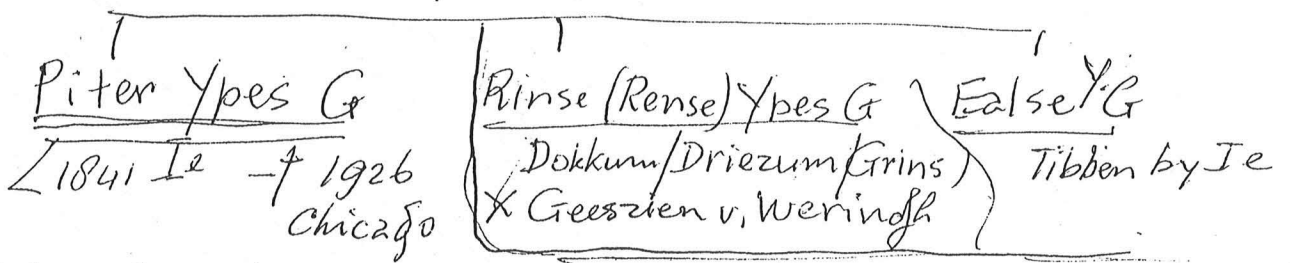 Piter Ypes G
∠1841 Ie – † 1926
Chicago
Rinse (Rense) Ypes G
Dokkum/Driezum/Grins)
X Geeszien v, Weringh
Ealse Y.G
Tibben by Ie